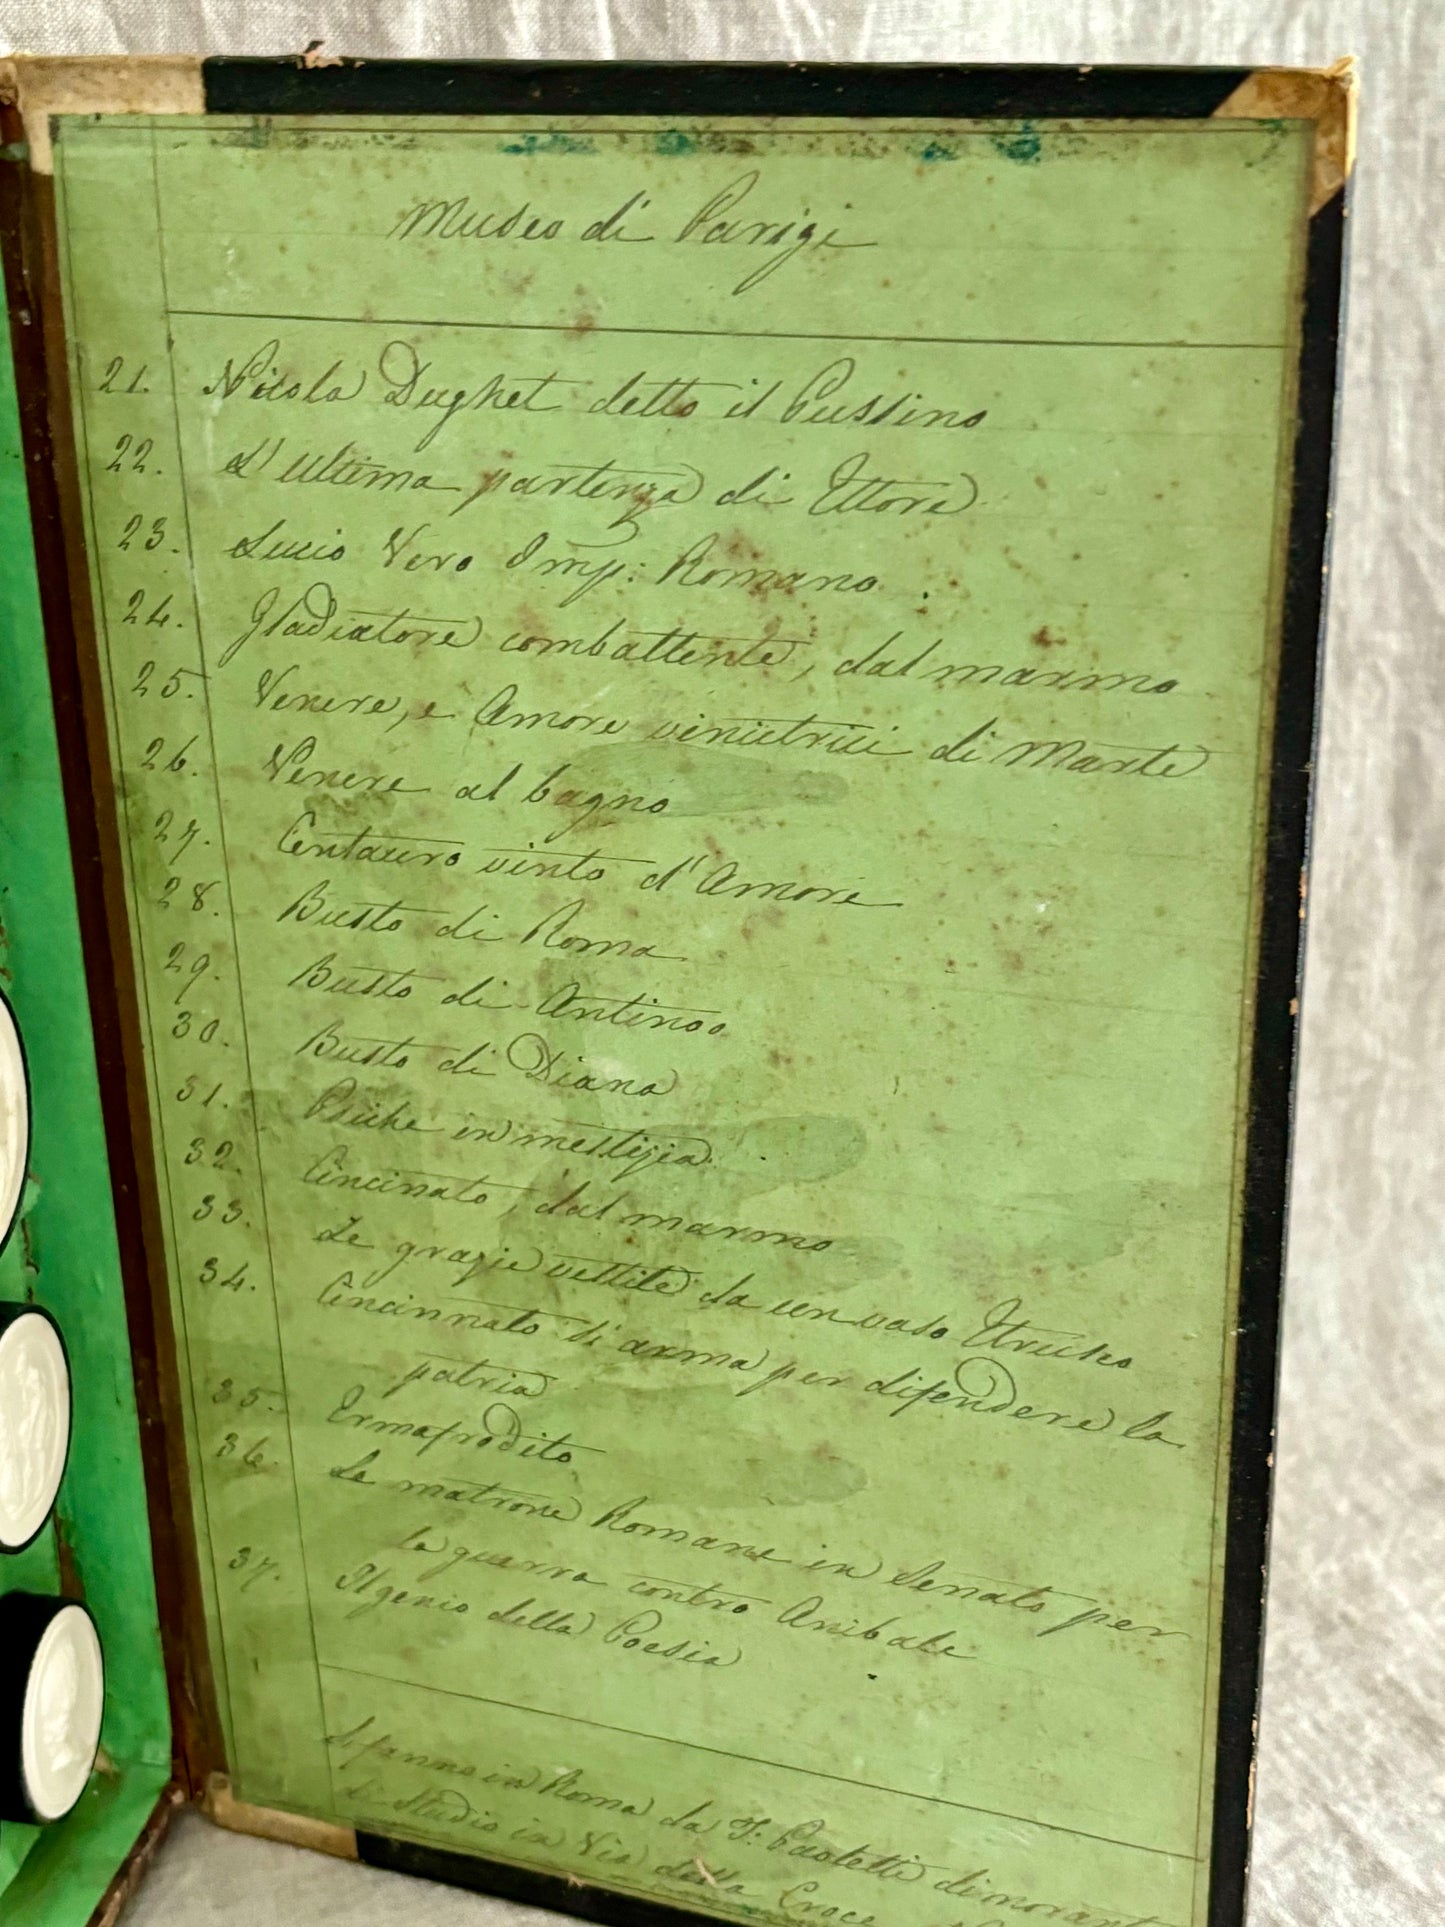 Museo di Parigi
21. Nicola Dughet detto il Pussino
22. L'ultima partenza di Ettore
23. Lucio Vero Imp: Romano
24. Gladiatore combattente, dal marmo
25. Venere, e Amore vincitrici di Marte
26. Venere al bagno
27. Centauro vinto d'Amore
28. Busto di Roma
29. Busto di Antinoo
30. Busto di Diana
31. Psiche in mestizia
32. Cincinato, dal marmo
33. Le grazie vestite da un vaso Etrusco
34. Cincinnato si arma per difendere la
patria
35. Ermafrodito
36. Le matrone Romane in Senato per
la guerra contro Anibale
37. Il genio della Poesia
Si fanno in Roma da P: Paoletti dimorant
di Studio in Via della Croce